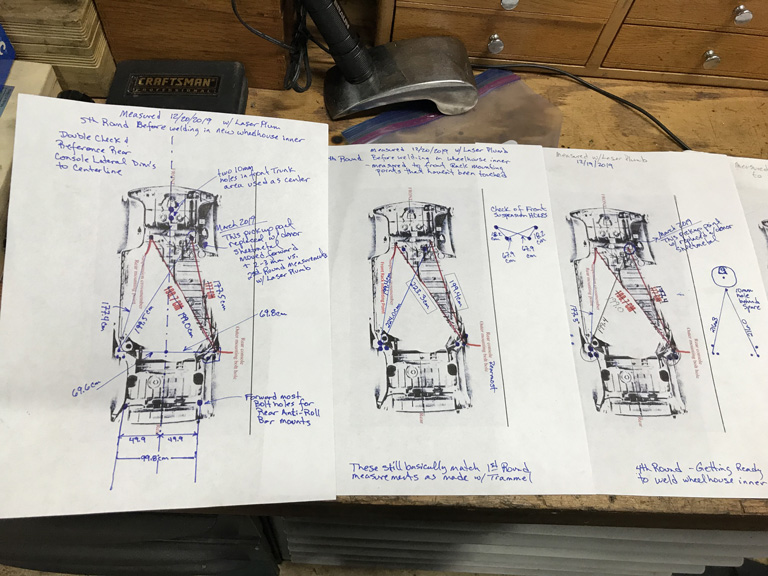 CRAFTSMAN
PROFESSIONAL
Measured 12/20/2019 w/ Laser Plum
5th Round Before welding in new wheelhouse inner
Double Check &
Reference Rear
Console Lateral Dim's
to Centerline
two 10mm
holes in front Trunk
area used as center
March 2019
This pickup point
replaced w/ donor
sheetmetal
moved forward
+ 2-3 mm vs.
2nd Round measurements
w/ Laser Plumb
177.4 cm
179.5 cm
199.0 cm
177.5 cm
69.8 cm
69.6 cm
Forward most
Bolt holes for
Rear Anti-Roll
Bar mounts
49.9
49.9
99.8 cm
Round
Measured 12/20/2019 w/ Laser Plumb
Before welding in wheelhouse inner
- measured to front Rack mounting
points that haven't been touched
Check of Front
Suspension HOLES
67.9
cm
67.9
cm
199.4 cm
These still basically match 1st Round
measurements as made w/ Trammel
Measured w/ Laser Plumb
12/19/2019
March 2019
This pickup point
was replaced w/ donor
sheetmetal
10mm
hole
behind
Spare
177.5
4th Round - Getting Ready
to weld wheelhouse inner
Measured
to